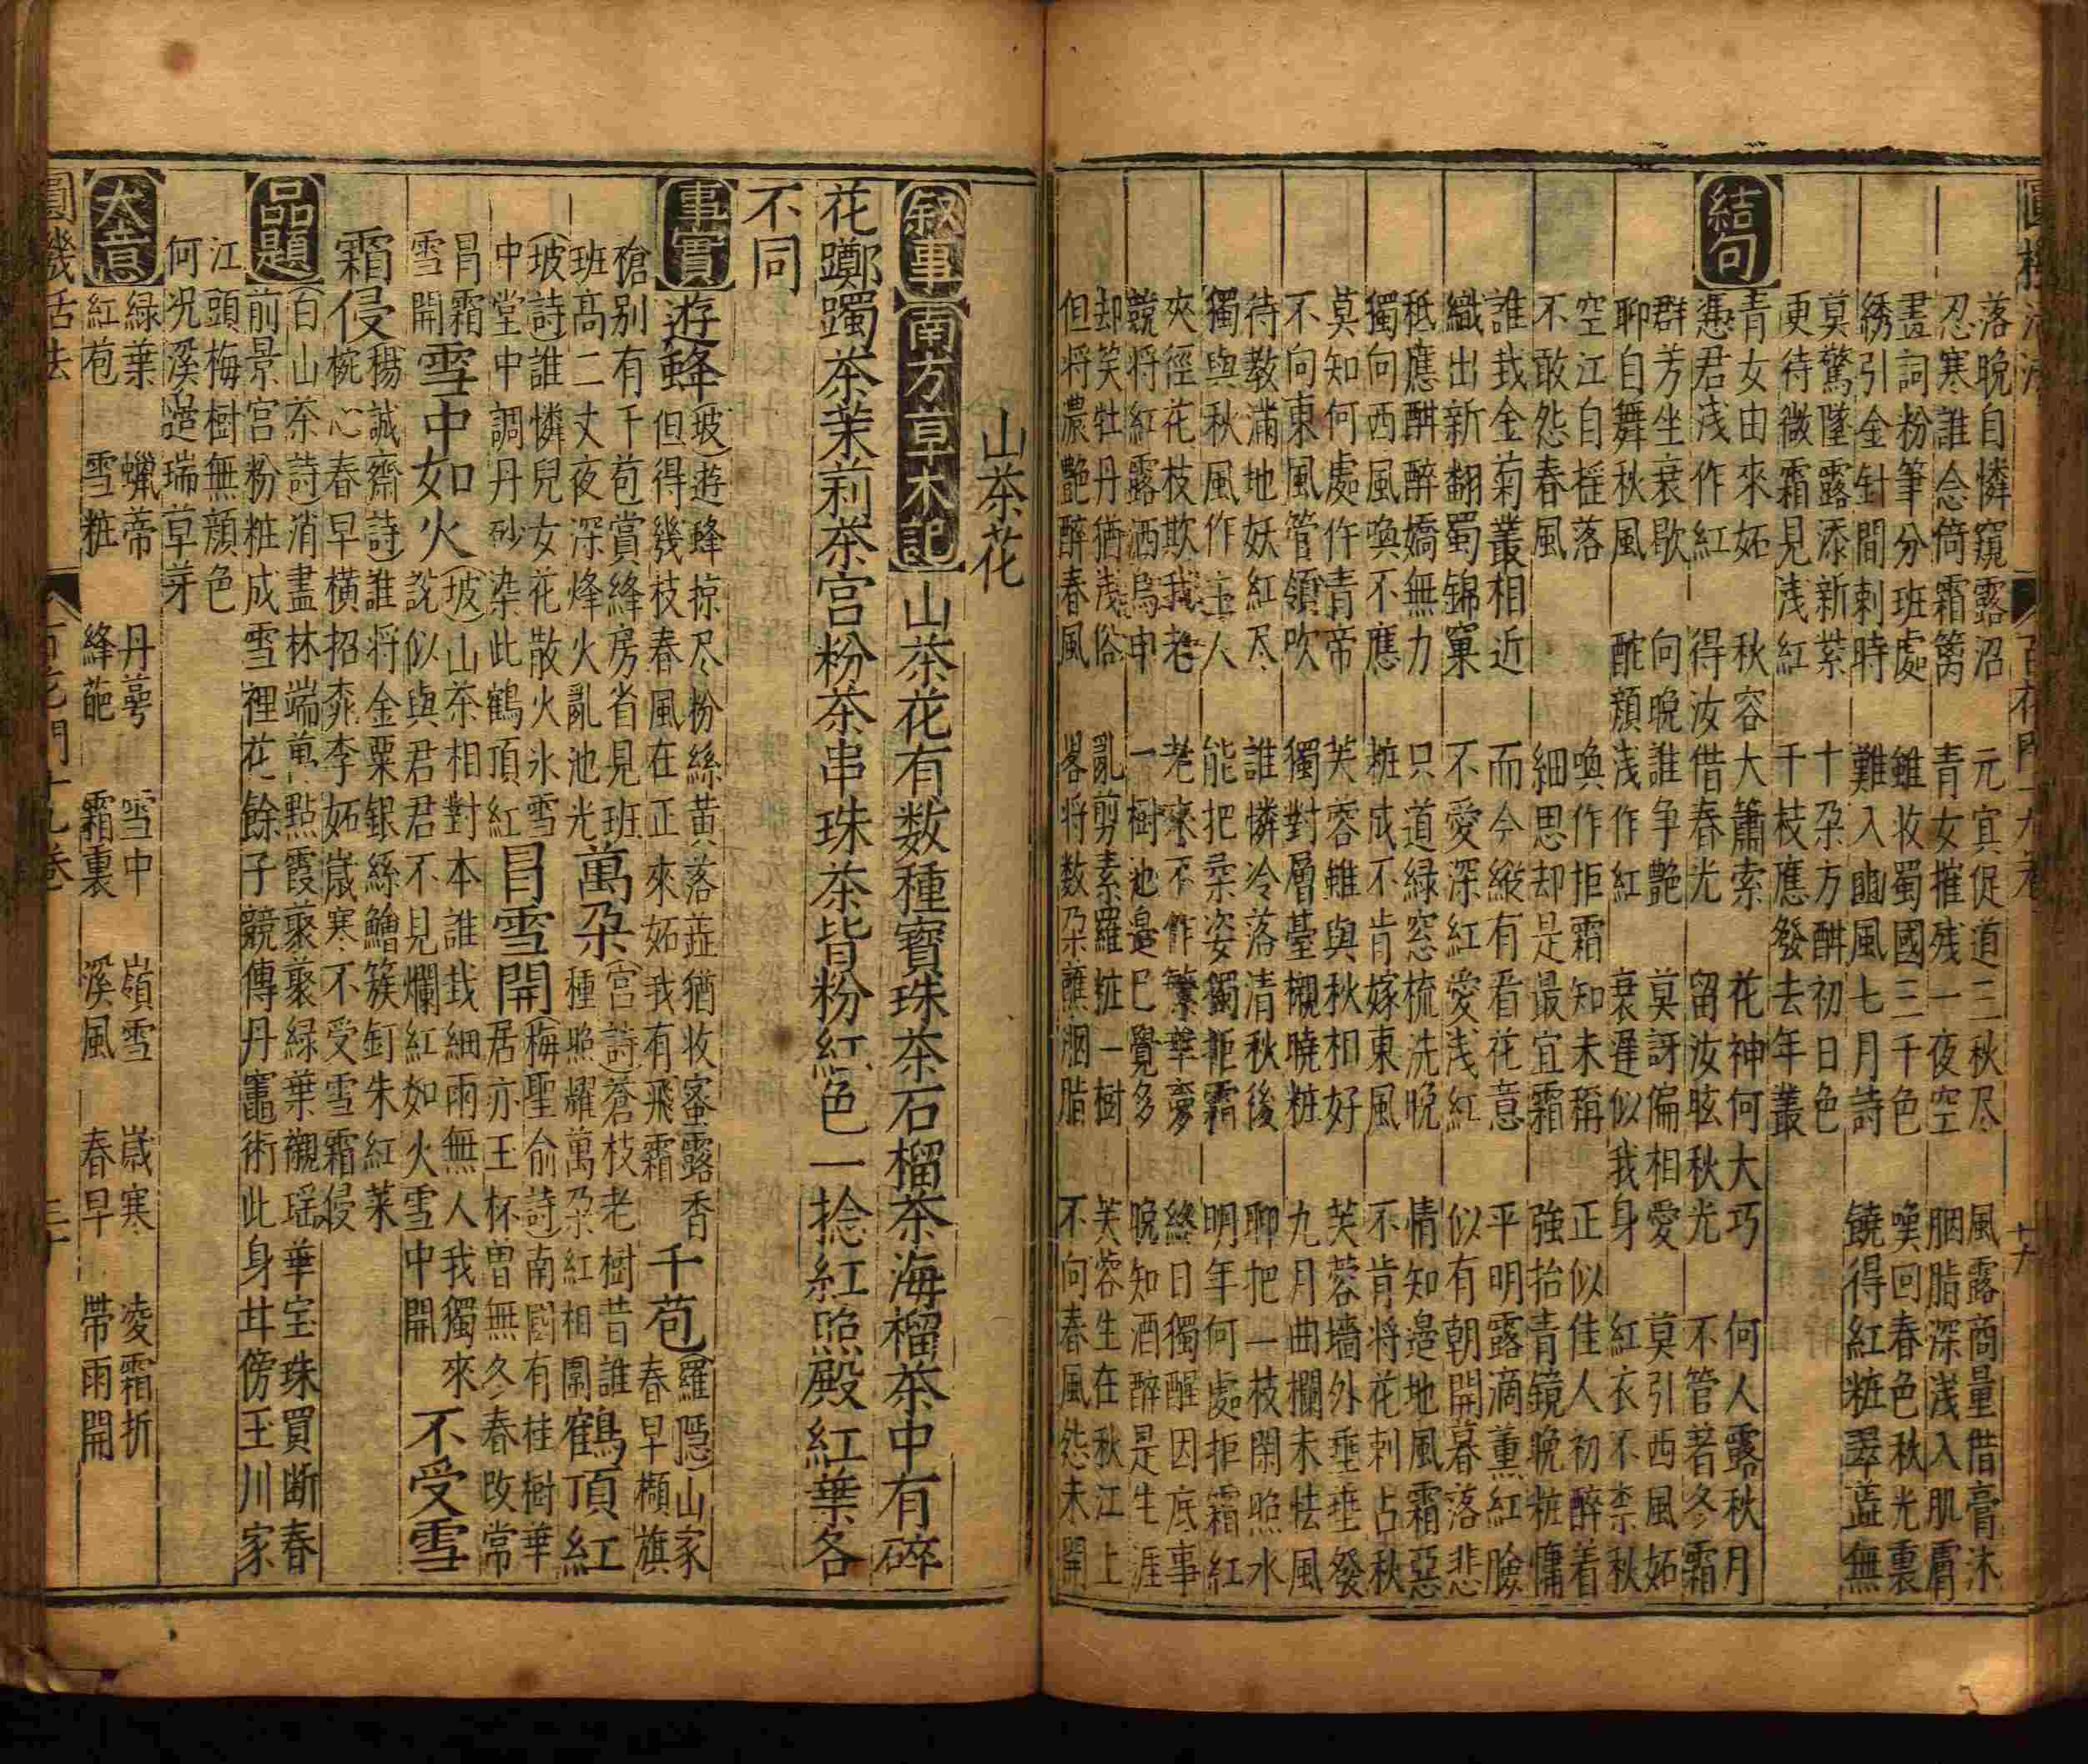 圓機活法 百花門十九卷
落晚自憐窺露沼 元宜促道三秋尽 風露商量借膏沐
忍寒誰念倚霜籬 青女摧残一夜空 胭脂深浅入肌膚
盡詞粉筆分班處 雖收蜀國三千色 嘆回春色秋光裏
綉引金針間刺時 難入豳風七月詩 鐃得紅粧翠蓋無
莫驚墜露添新紫 十朶方酣初日色
更待微霜見浅紅 千枝應發去年叢
結句
青女由來妬 秋容大蕭索 花神何大巧 何人露秋月
憑君浅作紅 得汝借春光 留汝眩秋光 不管著冬霜
群芳坐衰歇 向晚誰争艶 莫訝偏相愛 莫引西風妬
聊自舞秋風 酡顏浅作紅 衰遲似我身 紅衣不柰秋
空江自揺落 喚作拒霜知未稱 正似佳人初醉着
不敢怨春風 細思却是最宜霜 強抬青鏡晚粧慵
誰哉金菊叢相近 而今縱有看花意 平明露滴薰紅臉
織出新翻蜀錦窠 不愛深紅愛浅紅 似有朝開暮落悲
秪應酣醉嬌無力 只道緑窓梳洗晚 情知邉地風霜惡
獨向西風喚不應 粧成不肯嫁東風 不肯将花刺占秋
莫知何處仵青帝 芙蓉雖與秋相好 芙蓉墻外垂垂發
不向東風管領吹 獨對層臺襯曉粧 九月曲欄未怯風
待教滿地妖紅尽 誰憐冷落清秋後 聊把一枝閑照水
獨與秋風作主人 能把柔姿獨拒霜 明年何處拒霜紅
夾徑花枝欺我老 老來不作繁華夢 終日獨醒因底事
競将紅露洒烏申 一樹池邉已覺多 晚知酒醉是生涯
却笑牡丹猶浅俗 亂剪素羅粧一樹 芙蓉生在秋江上
但将濃艶醉春風 畧将数朶蘸胭脂 不向春風怨未開
山茶花
叙事 南方草木記 山茶花有数種寳珠茶石榴茶海榴茶中有碎
花躑躅茶茉莉茶宫粉茶串珠茶皆粉紅色一捻紅照殿紅葉各
不同
事實 遊蜂 (坡)遊蜂掠尽粉絲黄落蕋猶收蜜露香
但得幾枝春風在正來妬我有飛霜 千苞 (羅隠)山家
春早櫴旗
槍别有千苞賞絳房省見班
班高二丈夜深烽火亂池光 萬朶 (宫詩)蒼枝老樹昔誰
種照耀萬朶紅相圍 鶴頂紅
(坡詩)誰憐兒女花散火氷雪
中堂中調丹砂染此鶴頂紅 冐雪開 (梅聖俞詩)南國有桂樹華
居亦玉杯曽無冬春改常
冐霜
雪開 雪中如火 (坡)山茶相對本誰哉細雨無人我獨來
説似與君君不見爛紅如火雪中開 不受雪
霜侵 (楊誠齋詩)誰将金粟銀絲鱠簇釘朱紅菜
椀心春早横招桃李妬歳寒不受雪霜侵
品題 (白山茶詩)消盡林端萬點霞褭褭緑葉襯瑶華宝珠買断春
前景宫粉粧成雪裡花餘子競傳丹竈術此身甘傍玉川家
江頭梅樹無顔色
何况溪邉瑞草芽
大意 緑葉 蠟蒂 丹萼 雪中 嶺雪 歳寒 凌霜折
紅苞 雪粧 絳葩 霜裏 溪風 春早 帶雨開
圓機活法 百花門十九卷